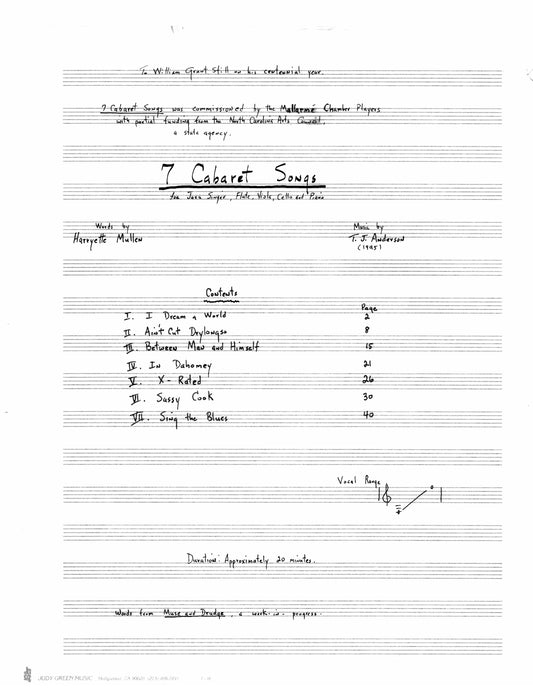 To William Grant Still on his centennial year.
7 Cabaret Songs was commissioned by the Mallarmé Chamber Players
with partial funding from the North Carolina Arts Council,
a state agency.
7 Cabaret Songs
for Jazz Singer, Flute, Viola, Cello and Piano
Words by
Harryette Mullen
Music by
T. J. Anderson
(1995)
Contents
Page
I. I Dream a World 2
II. Ain't Cut Drylongso 8
III. Between Man and Himself 15
IV. In Dahomey 21
V. X-Rated 26
VI. Sassy Cook 30
VII. Sing the Blues 40
Vocal Range
Duration: Approximately 20 minutes.
Words from Muse and Drudge, a work-in-progress.
JUDY GREEN MUSIC Hollywood, CA 90028